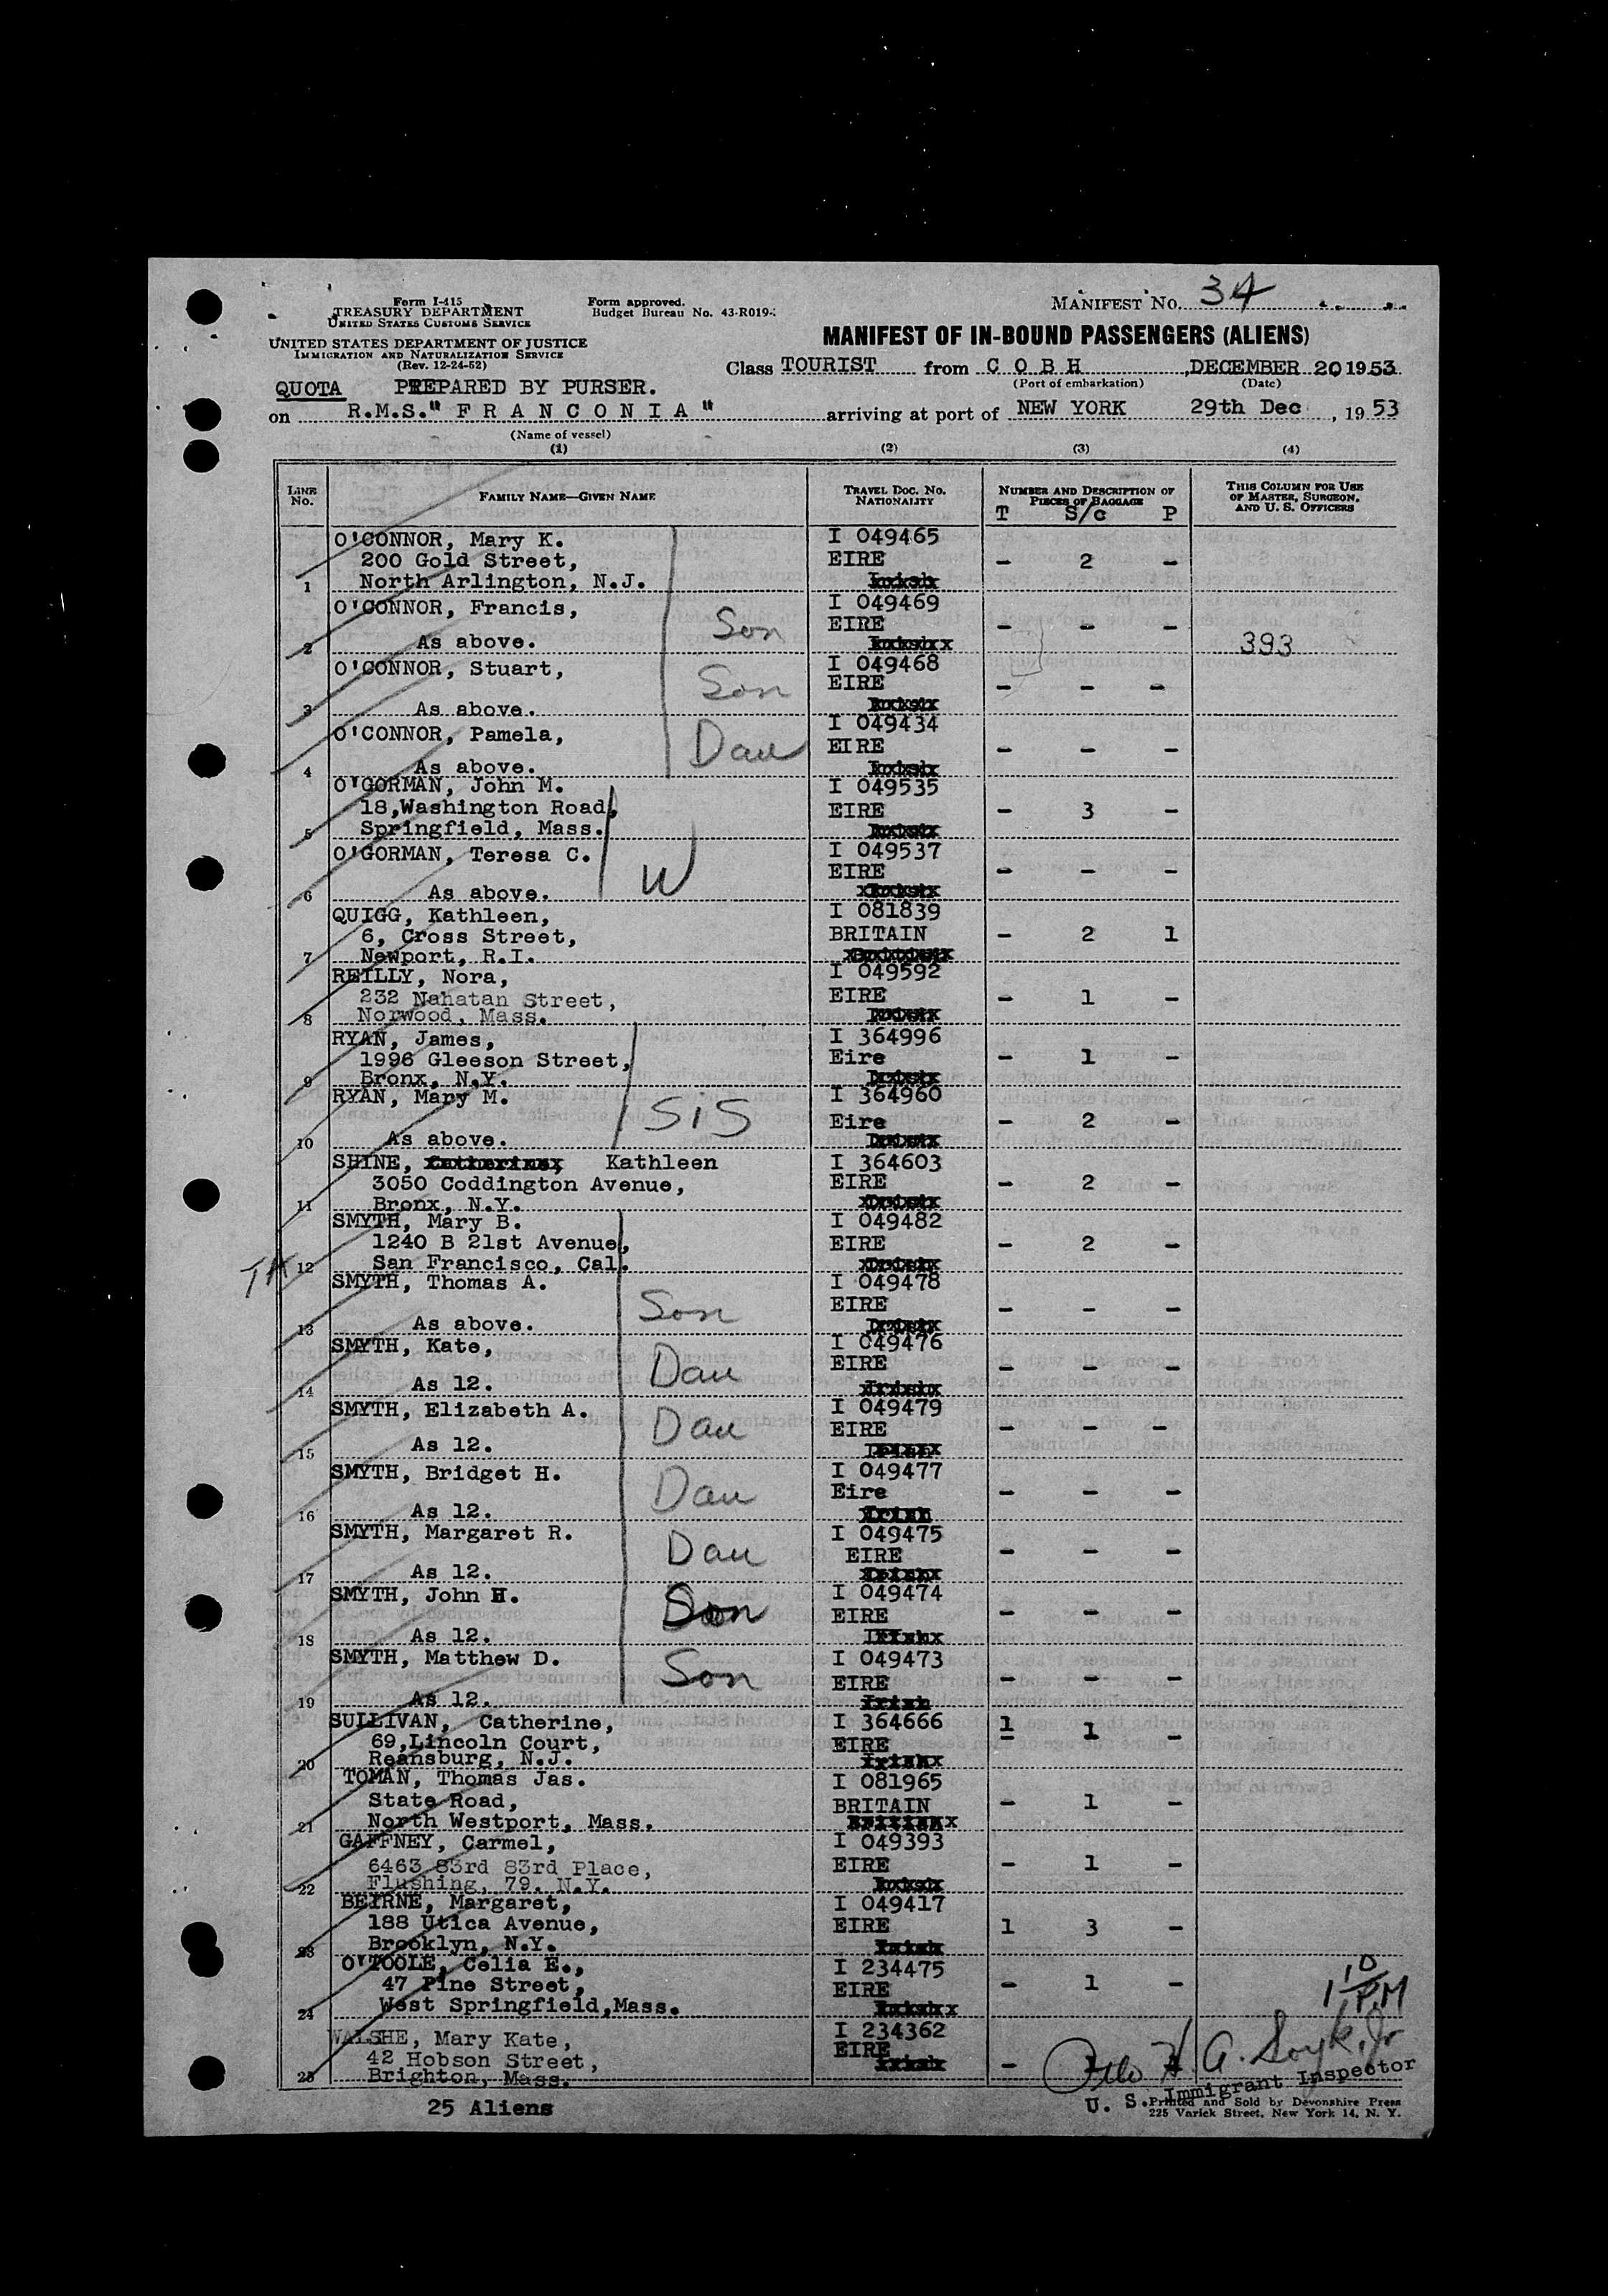 Form I-415
TREASURY DEPARTMENT
UNITED STATES CUSTOMS SERVICE
UNITED STATES DEPARTMENT OF JUSTICE
IMMIGRATION AND NATURALIZATION SERVICE
(Rev. 12-24-52)
Form approved.
Budget Bureau No. 43-R019-
MANIFEST NO. 34
MANIFEST OF IN-BOUND PASSENGERS (ALIENS)
Class TOURIST from C O B H, DECEMBER 20 1953
(Port of embarkation) (Date)
QUOTA PREPARED BY PURSER.
on R.M.S." F R A N C O N I A " arriving at port of NEW YORK 29th Dec, 1953
(Name of vessel)
(1) (2) (3) (4)
LINE No. FAMILY NAME—GIVEN NAME TRAVEL DOC. NO. NATIONALITY NUMBER AND DESCRIPTION OF PIECES OF BAGGAGE THIS COLUMN FOR USE OF MASTER, SURGEON, AND U. S. OFFICERS
T S/c P
O'CONNOR, Mary K. I 049465
200 Gold Street, EIRE - 2 -
1 North Arlington, N.J.
O'CONNOR, Francis, I 049469
Son EIRE - - -
2 As above. 393
O'CONNOR, Stuart, I 049468
Son EIRE - - -
3 As above.
O'CONNOR, Pamela, I 049434
Dau EIRE - - -
4 As above.
O'GORMAN, John M. I 049535
18,Washington Road, EIRE - 3 -
5 Springfield, Mass.
O'GORMAN, Teresa C. I 049537
W EIRE - - -
6 As above.
QUIGG, Kathleen, I 081839
6, Cross Street, BRITAIN - 2 1
7 Newport, R.I.
REILLY, Nora, I 049592
232 Nahatan Street, EIRE - 1 -
8 Norwood, Mass.
RYAN, James, I 364996
1996 Gleeson Street, Eire - 1 -
9 Bronx, N.Y.
RYAN, Mary M. I 364960
SIS Eire - 2 -
10 As above.
SHINE, Catherine, Kathleen I 364603
3050 Coddington Avenue, EIRE - 2 -
11 Bronx, N.Y.
SMYTH, Mary B. I 049482
1240 B 21st Avenue, EIRE - 2 -
12 San Francisco, Cal.
SMYTH, Thomas A. I 049478
Son EIRE - - -
13 As above.
SMYTH, Kate, I 049476
Dau EIRE - - -
14 As 12.
SMYTH, Elizabeth A. I 049479
Dau EIRE - - -
15 As 12.
SMYTH, Bridget H. I 049477
Dau Eire - - -
16 As 12. Irish
SMYTH, Margaret R. I 049475
Dau EIRE - - -
17 As 12.
SMYTH, John H. I 049474
Son EIRE - - -
18 As 12. Irish
SMYTH, Matthew D. I 049473
Son EIRE - - -
19 As 12. Irish
SULLIVAN, Catherine, I 364666
69,Lincoln Court, EIRE 1 1 -
20 Reansburg, N.J. Irish
TOMAN, Thomas Jas. I 081965
State Road, BRITAIN - 1 -
21 North Westport, Mass.
GAFFNEY, Carmel, I 049393
6463 83rd 83rd Place, EIRE - 1 -
22 Flushing, 79. N.Y.
BEIRNE, Margaret, I 049417
188 Utica Avenue, EIRE 1 3 -
23 Brooklyn, N.Y.
O'TOOLE, Celia E., I 234475
47 Pine Street, EIRE - 1 -
24 West Springfield,Mass.
WALSHE, Mary Kate, I 234362
42 Hobson Street, EIRE -
25 Brighton, Mass.
25 Aliens
1 10 PM
U. S. Immigrant Inspector
Printed and Sold by Devonshire Press
225 Varick Street, New York 14, N. Y.